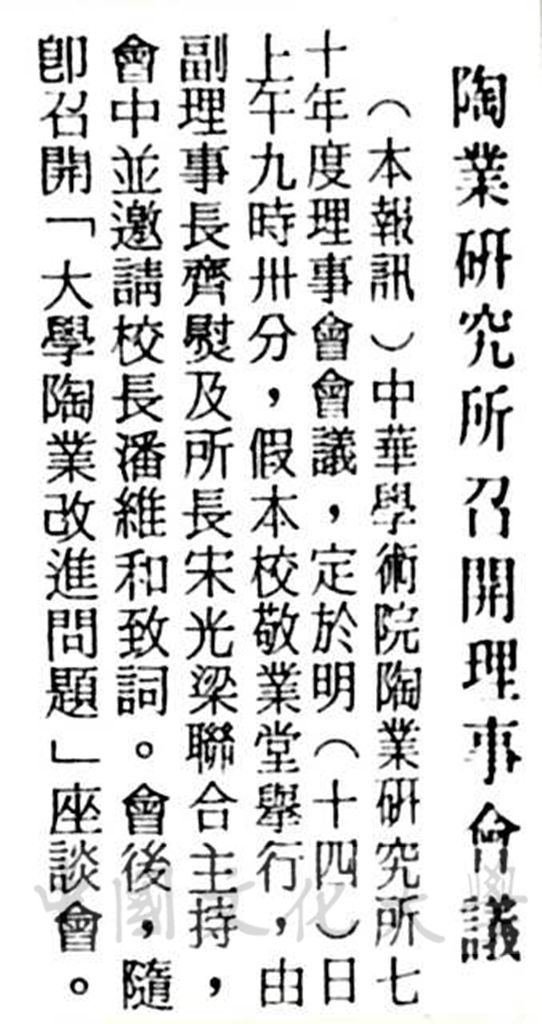 陶業研究所召開理事會議
（本報訊）中華學術院陶業研究所七
十年度理事會會議，定於明（十四）日
上午九時卅分，假本校敬業堂舉行，由
副理事長齊熨及所長宋光梁聯合主持，
會中並邀請校長潘維和致詞。會後，隨
即召開「大學陶業改進問題」座談會。
中國文化大學